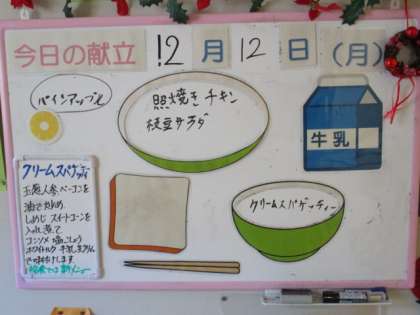 今日の献立 12月12日(月)
パインアップル
照焼きチキン
枝豆サラダ
牛乳
クリームスパゲッティー
クリームスパゲッティ
玉葱人参ベーコンを
油で炒め
しめじ スイートコーンを
入れ煮て
コンソメ 塩こしょう
ホワイトルウ 牛乳 生クリーム